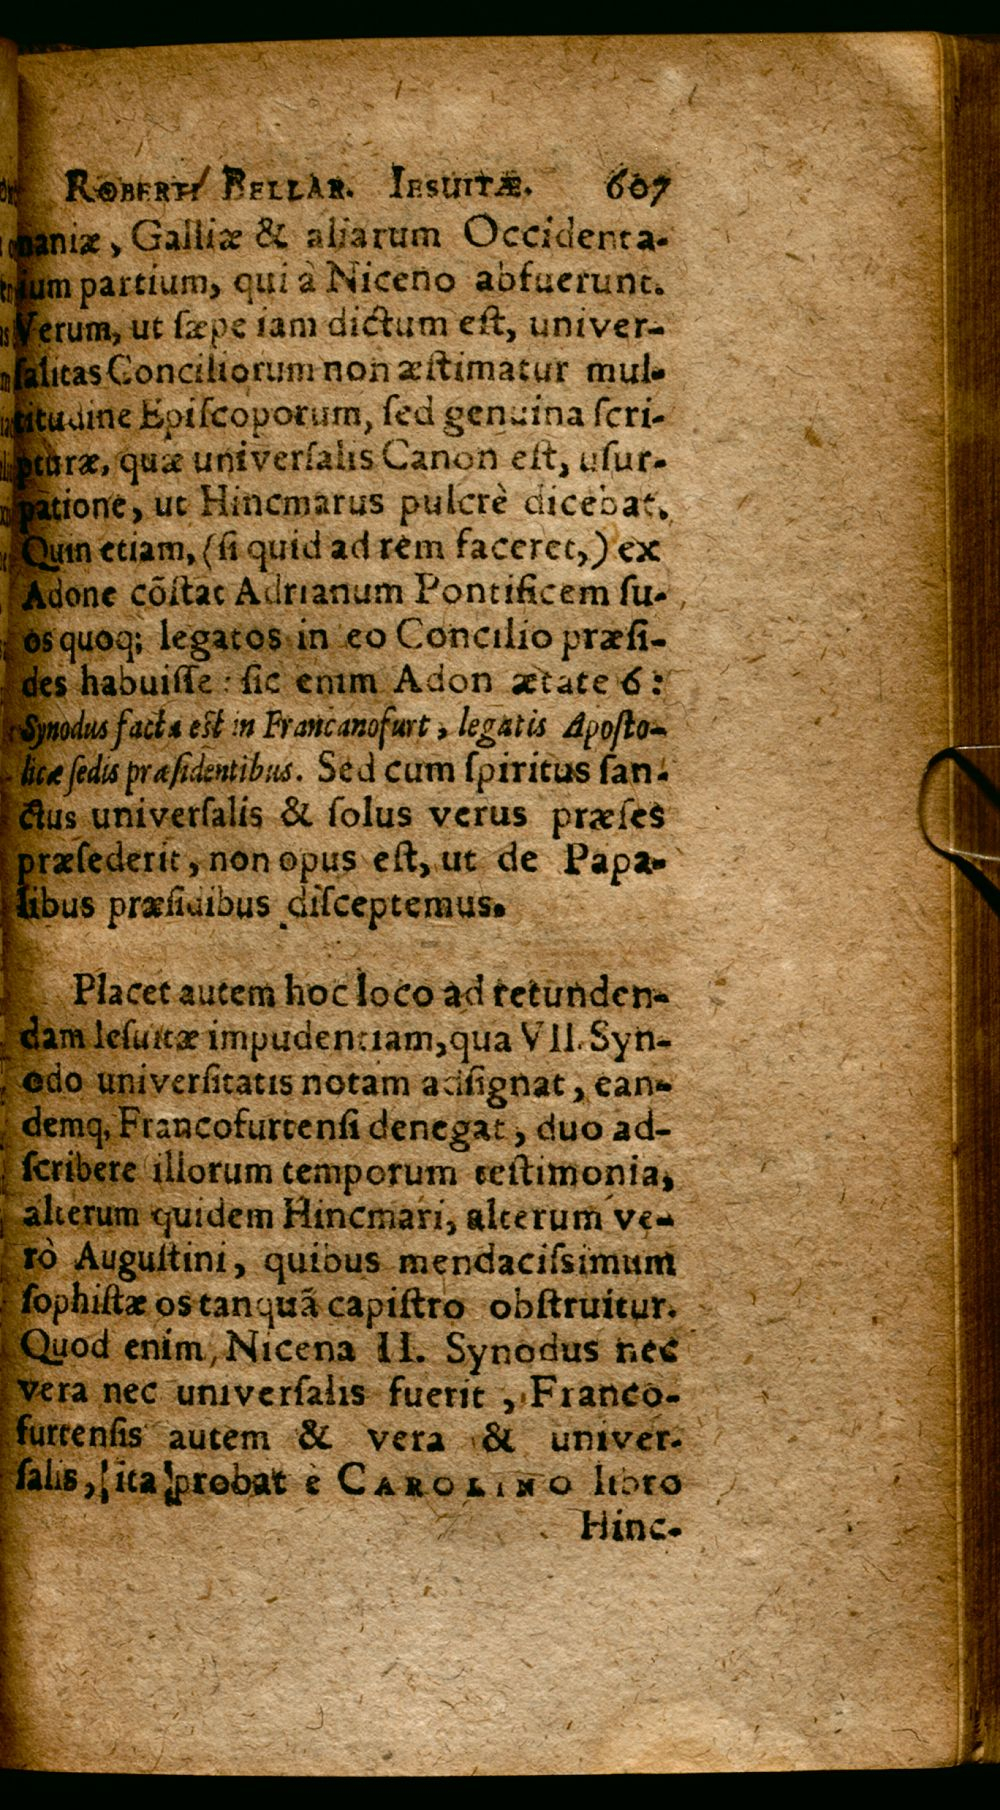 ROBERTI BELLAR. IESUITÆ. 607
maniæ, Galliæ & aliarum Occidenta-
lium partium, qui à Niceno abfuerunt.
Verum, ut ſæpe iam dictum eſt, univer-
ſalitas Conciliorum non æſtimatur mul-
titudine Epiſcoporum, ſed genuina ſcri-
pturæ, quæ universalis Canon eſt, uſur-
patione, ut Hincmarus pulcrè dicebat.
Quin etiam, (ſi quid ad rem faceret,) ex
Adone cõſtat Adrianum Pontificem ſu-
os quoq; legatos in eo Concilio præſi-
des habuiſſe: ſic enim Adon ætate 6:
Synodus facta eſt in Francanofurt, legatis Apoſto-
licæ ſedis præſidentibus. Sed cum ſpiritus ſan-
ctus univerſalis & ſolus verus præſes
præſederit, non opus eſt, ut de Papa-
libus præſidibus diſceptemus.
Placet autem hoc loco ad retunden-
dam Ieſuitæ impudentiam, qua VII. Syn-
odo univerſitatis notam adſignat, ean-
demq, Francofurtenſi denegat, duo ad-
ſcribere illorum temporum teſtimonia,
alterum quidem Hincmari, alterum ve-
rò Auguſtini, quibus mendaciſsimum
ſophiſtæ os tanquã capiſtro obſtruitur.
Quod enim, Nicena II. Synodus nec
vera nec univerſalis fuerit, Franco-
furtenſis autem & vera & univer-
ſalis, ita probat è CAROLINO libro
Hinc-